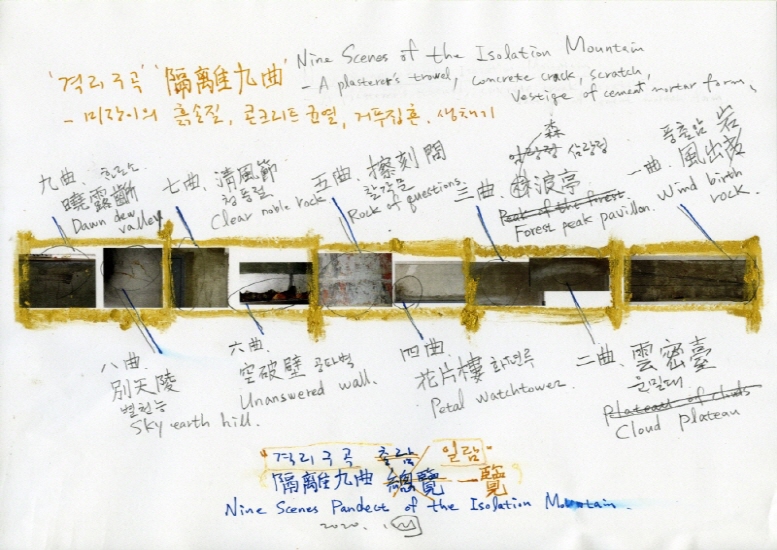 '격리구곡' '隔離九曲' Nine Scenes of the Isolation Mountain
- A plasterer's trowel, concrete crack, scratch,
Vestige of cement mortar form,
- 미장이의 흙손질, 콘크리트 균열, 거푸집흔, 생채기
九曲.
曉露
Dawn dew
valley
七曲. 清風節
청풍절
Clear noble rock
五曲. 擦刻問
찰각문
Rock of questions.
森
삼랑정
三曲. 波亭
Peak of the forest
Forest peak pavilion.
풍출암 岩
一曲. 風出岩
Wind birth
rock.
八曲.
別天陵
별천능
Sky earth hill.
六曲.
空破壁 공파벽
Unanswered wall.
四曲.
花片樓 화편루
Petal watchtower.
二曲. 雲密臺
운밀대
Plateau of clouds
Cloud plateau
"격리구곡 총람 일람"
隔離九曲 總覽 一覽
Nine Scenes Pandect of the Isolation Mountain.
2020.